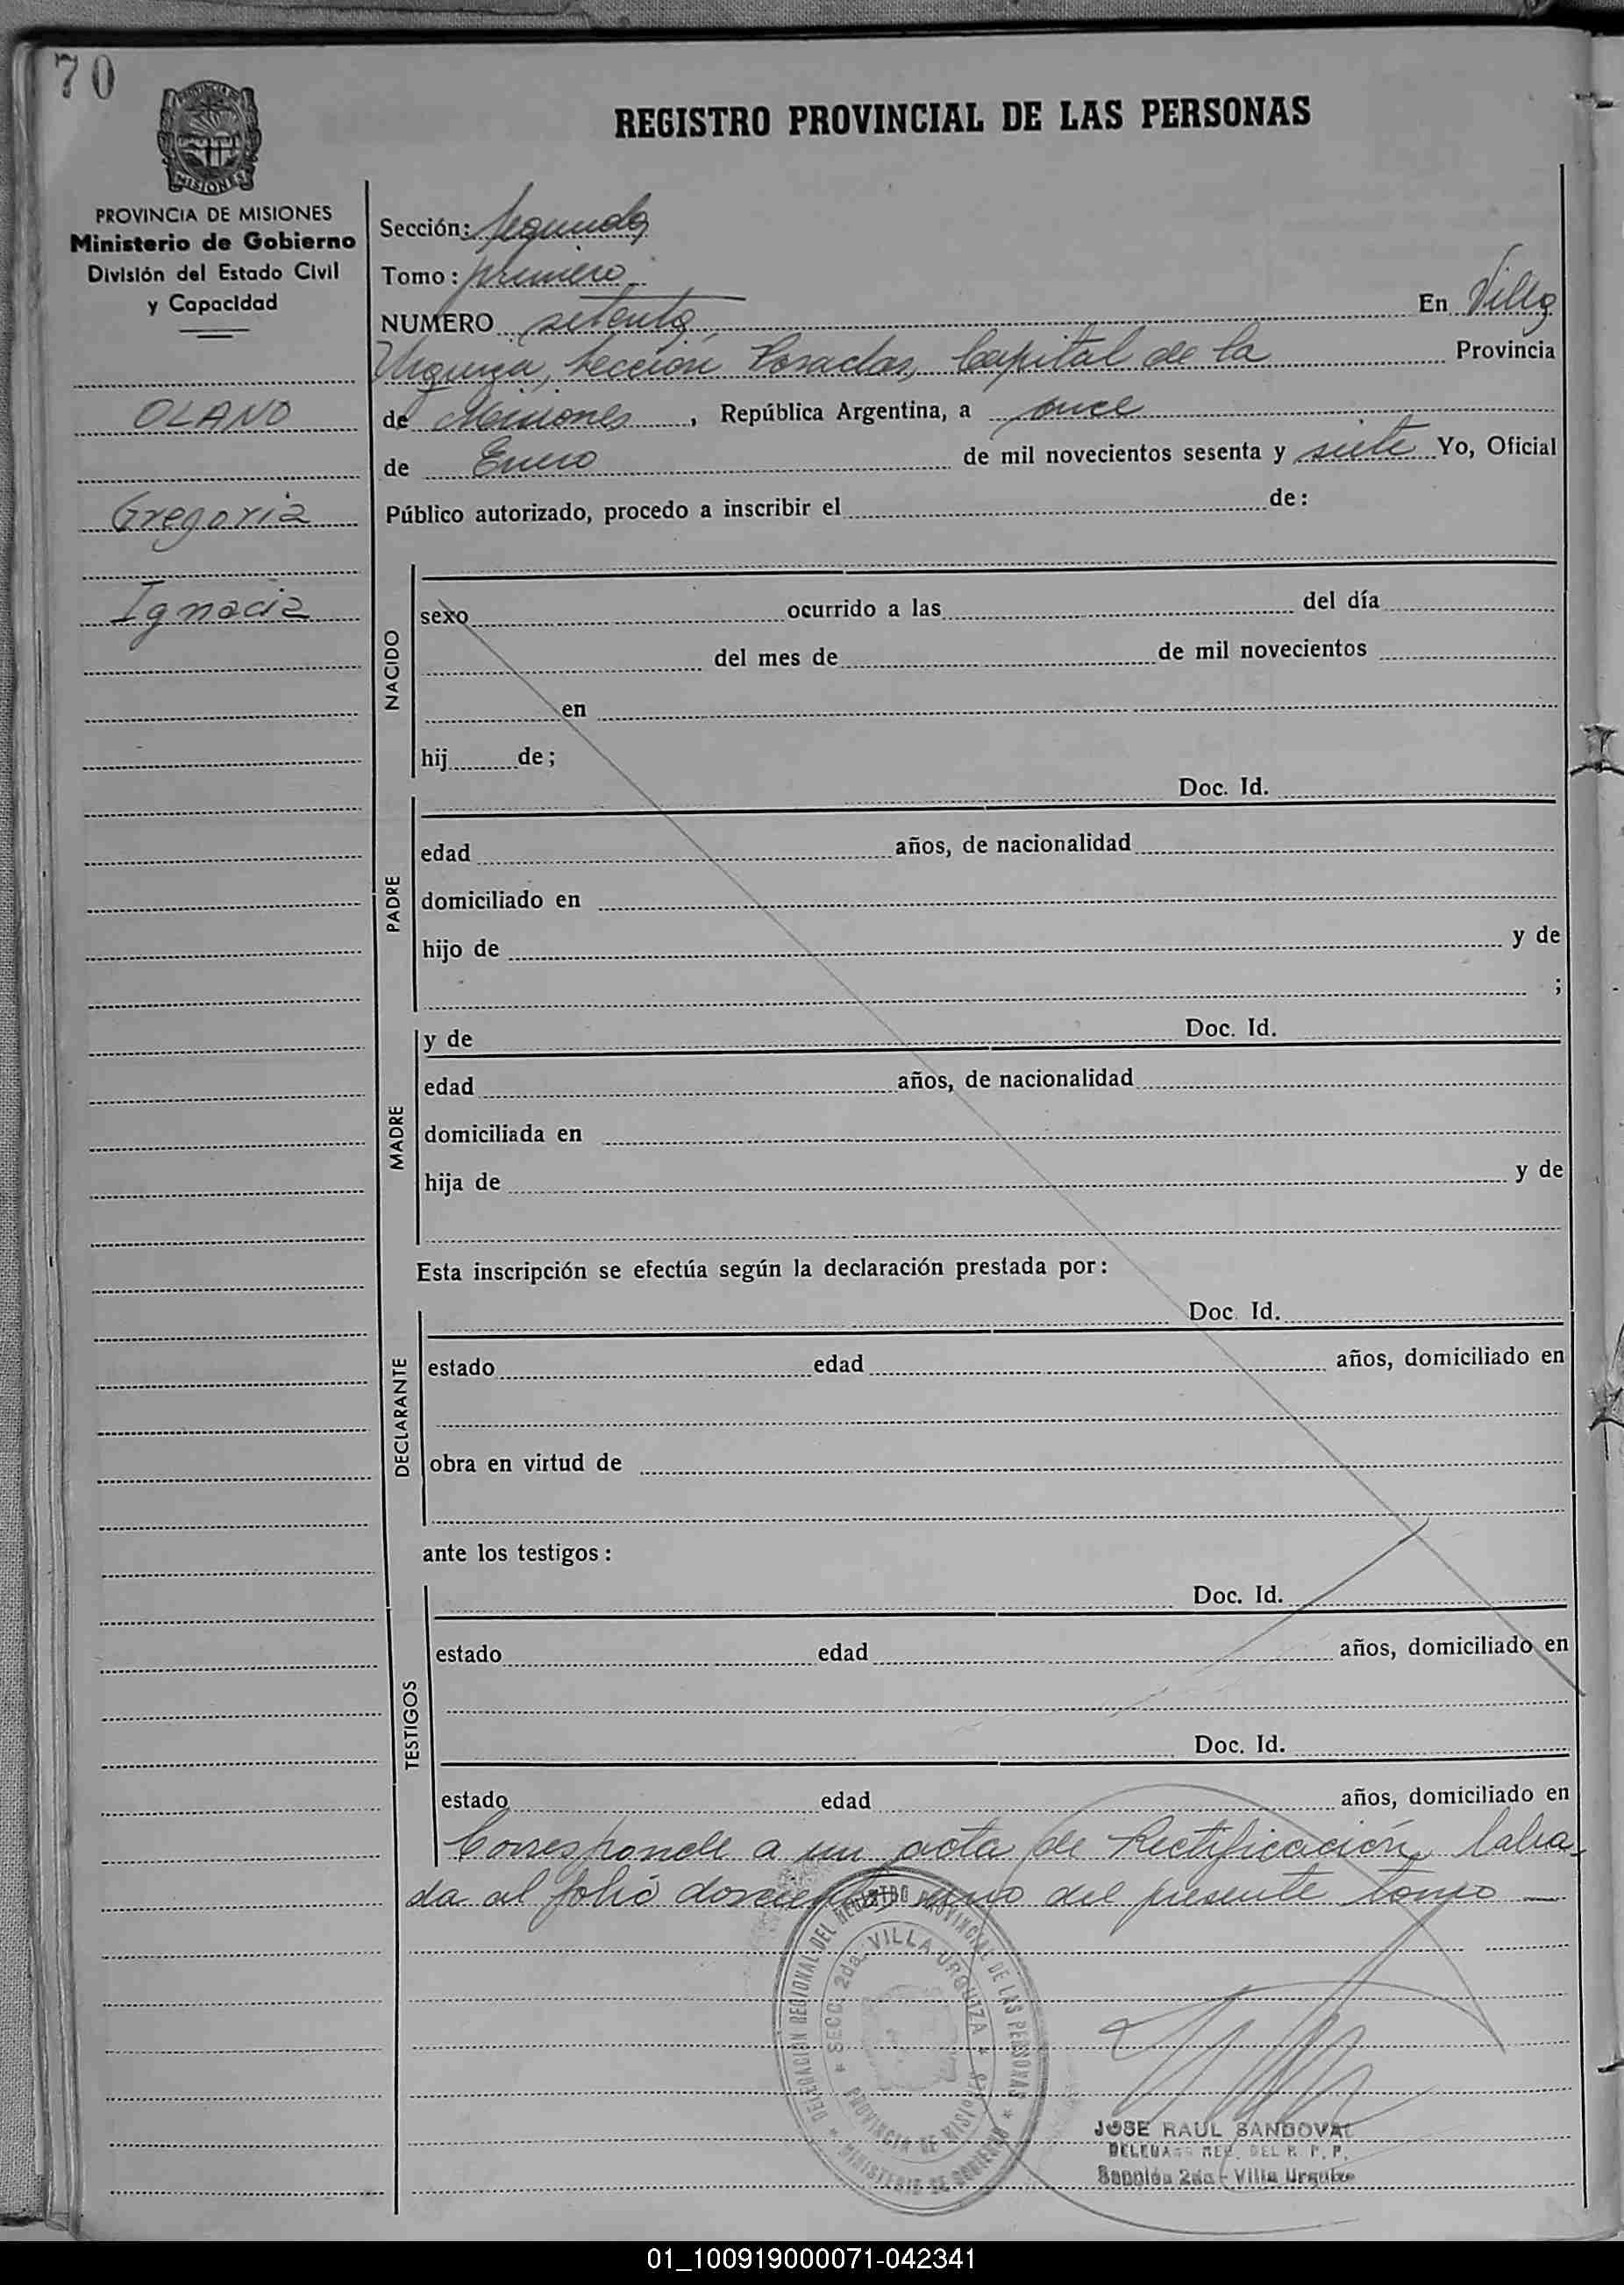 70
MISIONES
PROVINCIA DE MISIONES
Ministerio de Gobierno
División del Estado Civil
y Capacidad
OLANO
Gregoria
Ignacia
REGISTRO PROVINCIAL DE LAS PERSONAS
Sección: Segunda
Tomo: primero
NUMERO setenta En Villa
Urquiza, Sección Posadas, Capital de la Provincia
de Misiones, República Argentina, a once
de Enero de mil novecientos sesenta y siete Yo, Oficial
Público autorizado, procedo a inscribir el de:
NACIDO
sexo ocurrido a las del día
del mes de de mil novecientos
en
hij de;
PADRE
Doc. Id.
edad años, de nacionalidad
domiciliado en
hijo de y de
;
MADRE
y de Doc. Id.
edad años, de nacionalidad
domiciliada en
hija de y de
Esta inscripción se efectúa según la declaración prestada por:
DECLARANTE
Doc. Id.
estado edad años, domiciliado en
obra en virtud de
ante los testigos:
TESTIGOS
Doc. Id.
estado edad años, domiciliado en
Doc. Id.
estado edad años, domiciliado en
Corresponde a un acta de Rectificación labra-
da al folio doscientos uno del presente tomo
DELEGACION REGIONAL DEL REGISTRO PROVINCIAL DE LAS PERSONAS
* SECC. 2da. VILLA URQUIZA *
PROVINCIA DE MISIONES
* MINISTERIO DE GOBIERNO *
JOSE RAUL SANDOVAL
DELEGADO REG. DEL R. P. P.
Sección 2da - Villa Urquiza
01_100919000071-042341